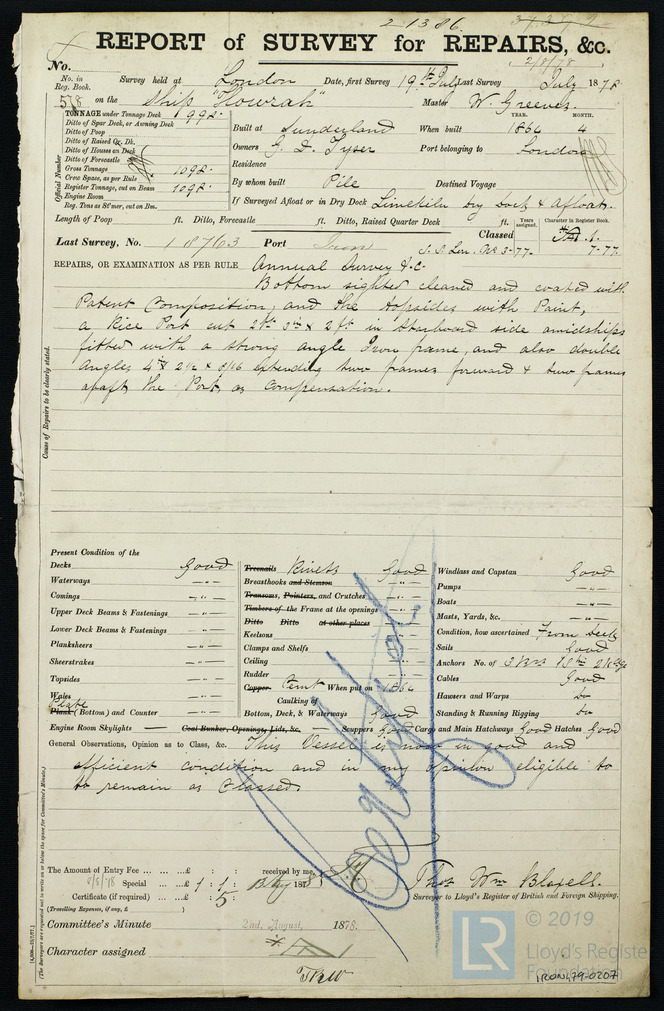 21386
REPORT of SURVEY for REPAIRS, &c.
No.
2/8/78
No. in Reg. Book. Survey held at London Date, first Survey 19th July Last Survey July 1878
578 on the Ship "Howrah" Master W. Greeves.
TONNAGE under Tonnage Deck 992.
Ditto of Spar Deck, or Awning Deck
Ditto of Poop
Ditto of Raised Qr. Dk.
Ditto of Houses on Deck
Ditto of Forecastle
Gross Tonnage 1092.
Crew Space, as per Rule
Register Tonnage, cut on Beam 1092.
Engine Room
Reg. Tons as St'mer, cut on Bm.
Official Number
Built at Sunderland When built YEAR. 1864 MONTH. 4
Owners G. D. Tyser Port belonging to London
Residence
By whom built Pile Destined Voyage
If Surveyed Afloat or in Dry Dock Limekiln dry dock & Afloat.
Length of Poop ft. Ditto, Forecastle ft. Ditto, Raised Quarter Deck ft. Years assigned. Character in Register Book.
Classed
Last Survey, No. 18763 Port Iron
7.77.
REPAIRS, OR EXAMINATION AS PER RULE Annual Survey &c.
Bottom sighted cleaned and coated with
Patent Composition, and the topsides with Paint,
a Rice Port cut 2ft 3in x 2ft in Starboard side amidships
fitted with a strong angle Iron frame, and also double
angles extending two frames forward & two frames
abaft the Port, as Compensation.
Cause of Repairs to be clearly stated.
Present Condition of the
Decks Good
Waterways — " —
Comings — " —
Upper Deck Beams & Fastenings — " —
Lower Deck Beams & Fastenings — " —
Planksheers — " —
Sheerstrakes — " —
Topsides — " —
Wales — " —
Plate
Plank (Bottom) and Counter — " —
Engine Room Skylights — Coal Bunker, Openings, Lids, &c. Scuppers Good Cargo and Main Hatchways Good Hatches Good
Treenails Rivets Good
Breasthooks and Stemson — " —
Transoms, Pointers, and Crutches — " —
Timbers of the Frame at the openings — " —
Ditto Ditto at other places
Keelsons — " —
Clamps and Shelfs
Ceiling
Rudder
Copper Cemt When put on 1864
Caulking of
Bottom, Deck, & Waterways Good
Windlass and Capstan Good
Pumps — " —
Boats — " —
Masts, Yards, &c. — " —
Condition, how ascertained From deck
Sails Good
Anchors No. of 3 Brs 1 Stm 2 Kedge
Cables Good
Hawsers and Warps Do
Standing & Running Rigging Do
General Observations, Opinion as to Class, &c. This Vessel is now in good and
efficient condition and in my opinion eligible to
to remain as Classed.
Certificd
The Amount of Entry Fee ... £ : : received by me,
Special ... £ 1 : 1 : 1878
Certificate (if required) ... £ : 5
(Travelling Expenses, if any, £ )
Thos. Wm Blaxell.
Surveyor to Lloyd's Register of British and Foreign Shipping.
Committee's Minute 2nd. August, 1878.
Character assigned
(The Surveyors are requested not to write on or below the space for Committee's Minute.)
LR
© 2019
Lloyd's Register
Foundation
IRON479-0207